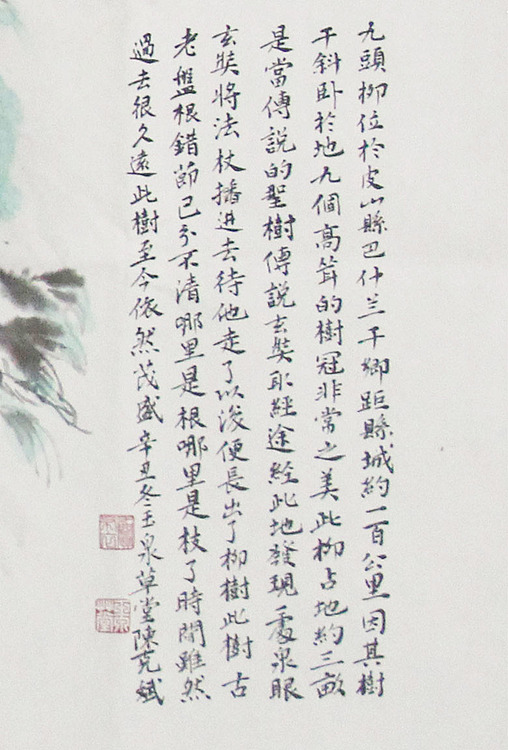 九頭柳位於皮山縣巴什兰干鄉距縣城約一百公里因其樹
干斜卧於地九個高耸的樹冠非常之美此柳占地約三畝
是當傳說的聖樹傳說玄奘取經途經此地發現一處泉眼
玄奘將法杖插进去待他走了以後便長出了柳樹此樹古
老盤根錯節已分不清哪里是根哪里是枝了時間雖然
過去很久遠此樹至今依然茂盛辛丑冬玉泉草堂陳克斌